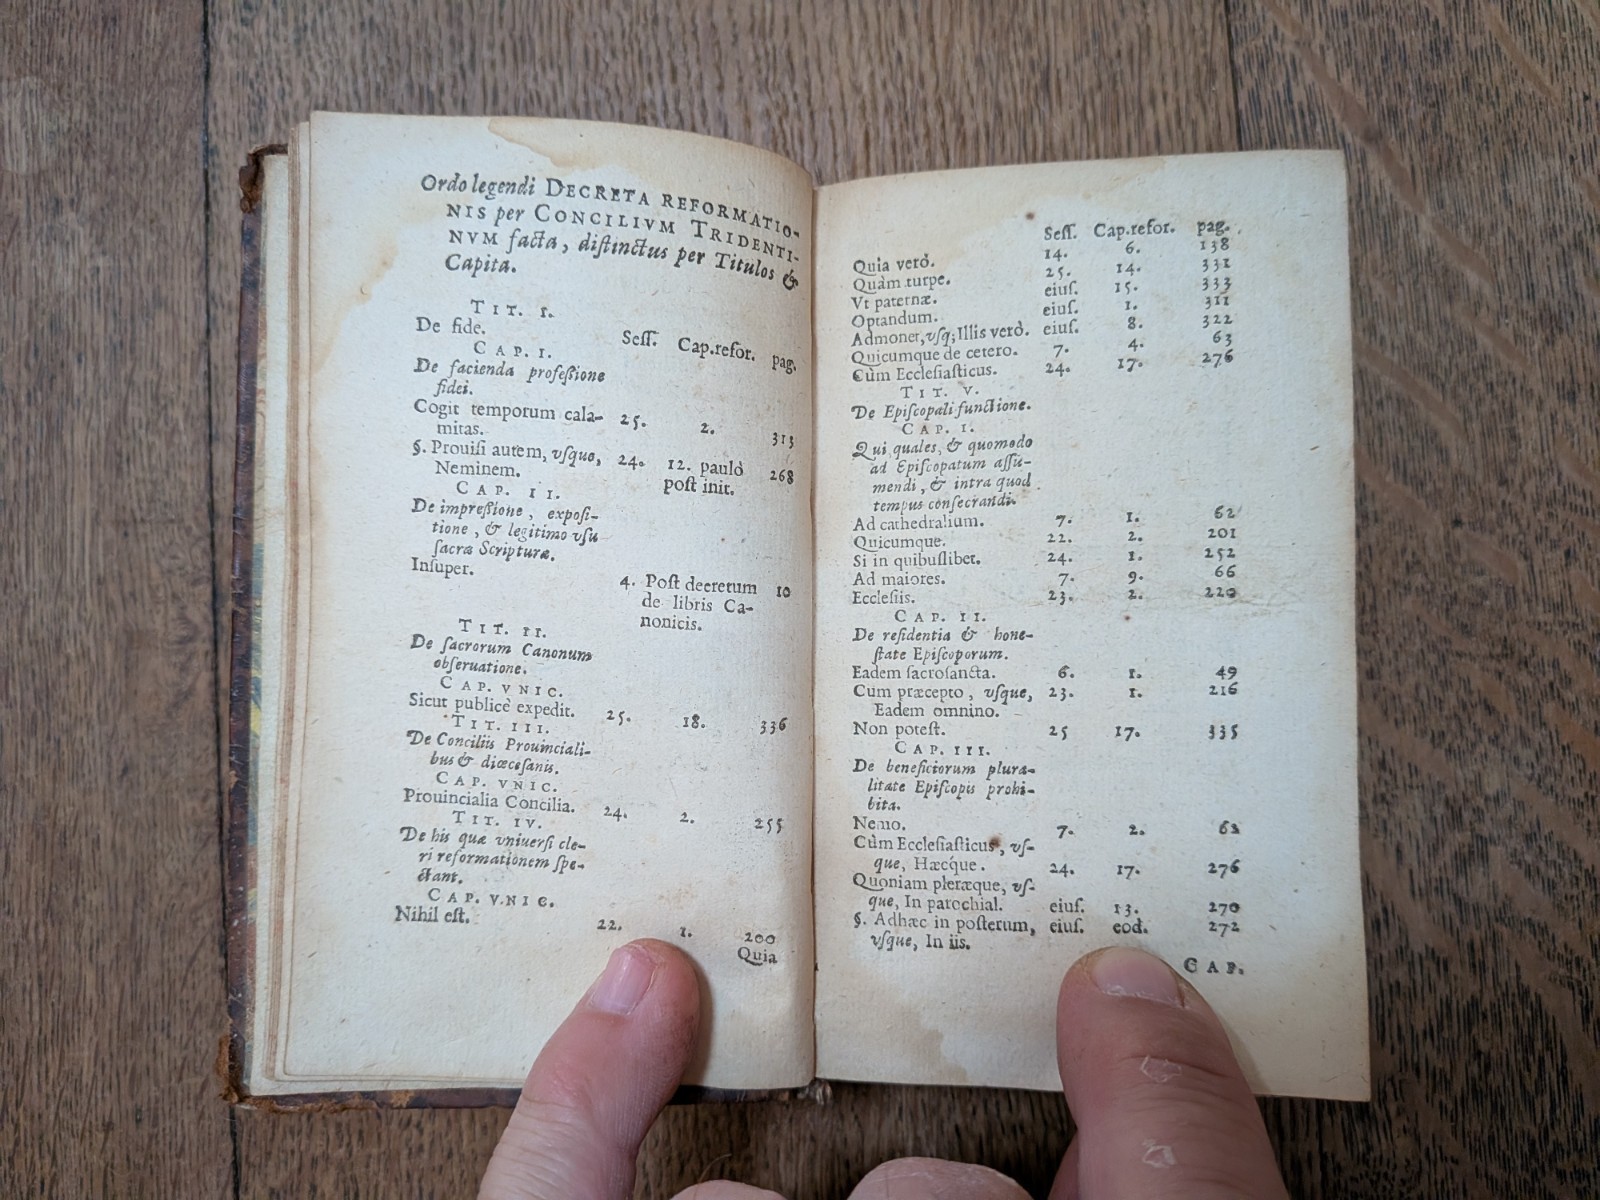 Ordo legendi DECRETA REFORMATIO-
NIS per CONCILIVM TRIDENTI-
NVM facta, distinctus per Titulos &
Capita.
TIT. I.
De fide. Sess. Cap.refor. pag.
CAP. I.
De facienda professione
fidei.
Cogit temporum cala- 25. 2. 313
mitas.
§. Prouisi autem, vsque, 24. 12. paulò 268
Neminem. post init.
CAP. II.
De impressione, exposi-
tione, & legitimo vsu
sacræ Scripturæ.
Insuper. 4. Post decretum 10
de libris Ca-
nonicis.
TIT. II.
De sacrorum Canonum
obseruatione.
CAP. VNIC.
Sicut publicè expedit. 25. 18. 336
TIT. III.
De Conciliis Prouinciali-
bus & diœcesanis.
CAP. VNIC.
Prouincialia Concilia. 24. 2. 255
TIT. IV.
De his quæ vniuersi cle-
ri reformationem spe-
ctant.
CAP. VNIC.
Nihil est. 22. 1. 200
Quia
Sess. Cap.refor. pag.
Quia verò. 14. 6. 138
Quàm turpe. 25. 14. 331
Vt paternæ. eius. 15. 333
Optandum. eius. 1. 311
Admonet, vsq; Illis verò. eius. 8. 322
Quicumque de cetero. 7. 4. 63
Cùm Ecclesiasticus. 24. 17. 276
TIT. V.
De Episcopali functione.
CAP. I.
Qui, quales, & quomodo
ad Episcopatum assu-
mendi, & intra quod
tempus consecrandi.
Ad cathedralium. 7. 1. 62
Quicumque. 22. 2. 201
Si in quibuslibet. 24. 1. 252
Ad maiores. 7. 9. 66
Ecclesiis. 23. 2. 220
CAP. II.
De residentia & hone-
state Episcoporum.
Eadem sacrosancta. 6. 1. 49
Cum præcepto, vsque, 23. 1. 216
Eadem omnino.
Non potest. 25 17. 335
CAP. III.
De beneficiorum plura-
litate Episcopis prohi-
bita.
Nemo. 7. 2. 62
Cùm Ecclesiasticus, vs-
que, Hæcque. 24. 17. 276
Quoniam pleræque, vs-
que, In parochial. eius. 13. 270
§. Adhæc in posterum, eius. eod. 272
vsque, In iis.
CAP.